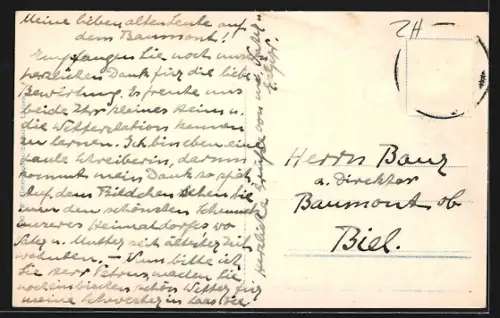 Meine lieben alten Leute auf
dem Baumont!
Empfangen Sie noch unsern
herzlichen Dank für die liebe
Bewirtung. Es freute uns
beide Ihr kleines Heim u.
die Wetterstation kennen
zu lernen. Ich bin eben eine
faule Schreiberin, darum
kommt mein Dank so spät.
Auf dem Bildchen sehen Sie
nun den schönsten
unseres Heimatdorfes wo
Vater u. Mutter seit ältester Zeit
wohnten. — Nun bitte ich
Sie Herr Petrus, machen Sie
noch ein bisschen schön Wetter für
meine Schwester in
Herzliche Grüsse von
ZH—
Herrn Banz
a. Direktor
Baumont ob
Biel.